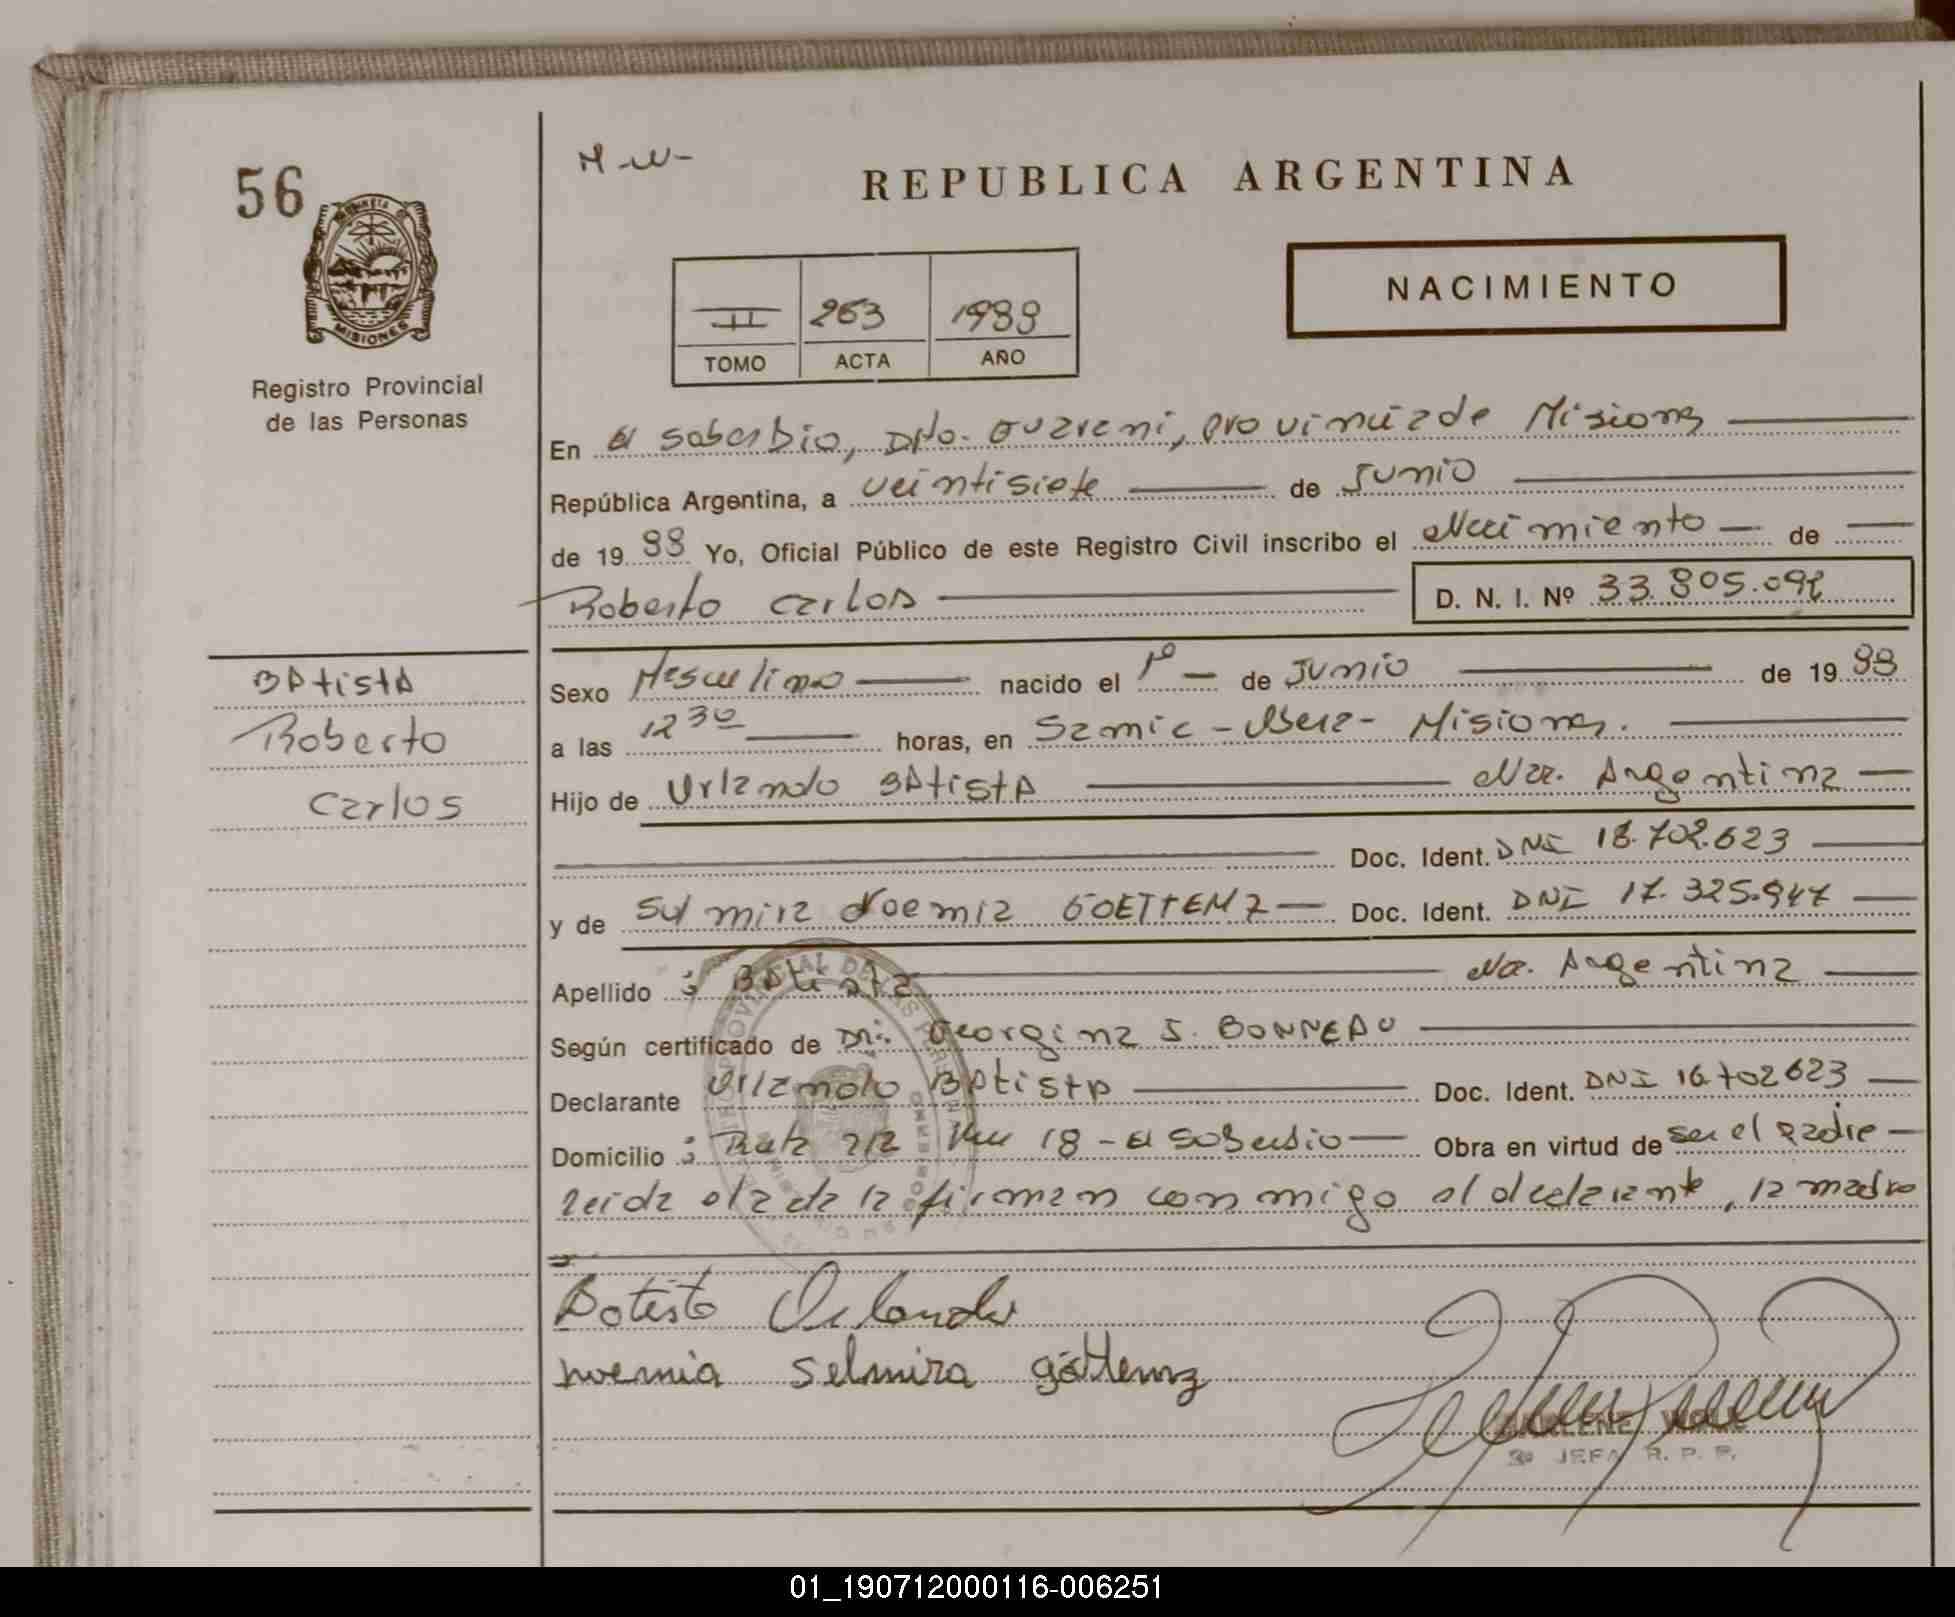 56
M w-
REPUBLICA ARGENTINA
MISIONES
Registro Provincial
de las Personas
II 263 1988
TOMO ACTA AÑO
NACIMIENTO
En El Soberbio, Dpto. Guarani, provincia de Misiones
República Argentina, a veintisiete de Junio
de 1988 Yo, Oficial Público de este Registro Civil inscribo el Nacimiento de
Roberto Carlos D. N. I. Nº 33.805.092
BAtistA
Roberto
Carlos
Sexo Masculino nacido el 1º de Junio de 1988
a las 12 30 horas, en Samic - Obera - Misiones.
Hijo de Orlando BAtistA Nac. Argentina
Doc. Ident. DNI 18.702.623
y de Sulmira Noemia GOETTEMZ Doc. Ident. DNI 17.325.947
Apellido : BAtista Na. Argentina
Según certificado de Dr. Georgina J. BONNEAU
Declarante Orlando BAtistA Doc. Ident. DNI 18.702623
Domicilio : Ruta 212 Km 18 - El Soberbio Obra en virtud de ser el padre
Leida el acta la firman conmigo el declarante, la madre
Batista Orlando
noemia selmira göttemz
MARLENE WOLL
3º JEFA R. P. P.
01_190712000116-006251